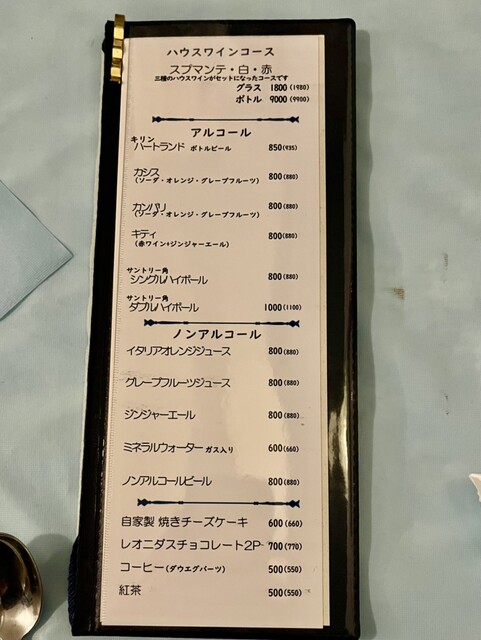 ハウスワインコース
スプマンテ・白・赤
三種のハウスワインがセットになったコースです
グラス 1800(1980)
ボトル 9000(9900)
アルコール
キリン
ハートランド ボトルビール 850(935)
カシス 800(880)
(ソーダ・オレンジ・グレープフルーツ)
カンパリ 800(880)
(ソーダ・オレンジ・グレープフルーツ)
キティ 800(880)
(赤ワイン+ジンジャーエール)
サントリー角
シングルハイボール 800(880)
サントリー角
ダブルハイボール 1000(1100)
ノンアルコール
イタリアオレンジジュース 800(880)
グレープフルーツジュース 800(880)
ジンジャーエール 800(880)
ミネラルウォーター ガス入り 600(660)
ノンアルコールビール 800(880)
自家製 焼きチーズケーキ 600(660)
レオニダスチョコレート2P 700(770)
コーヒー(ダウエグバーツ) 500(550)
紅茶 500(550)